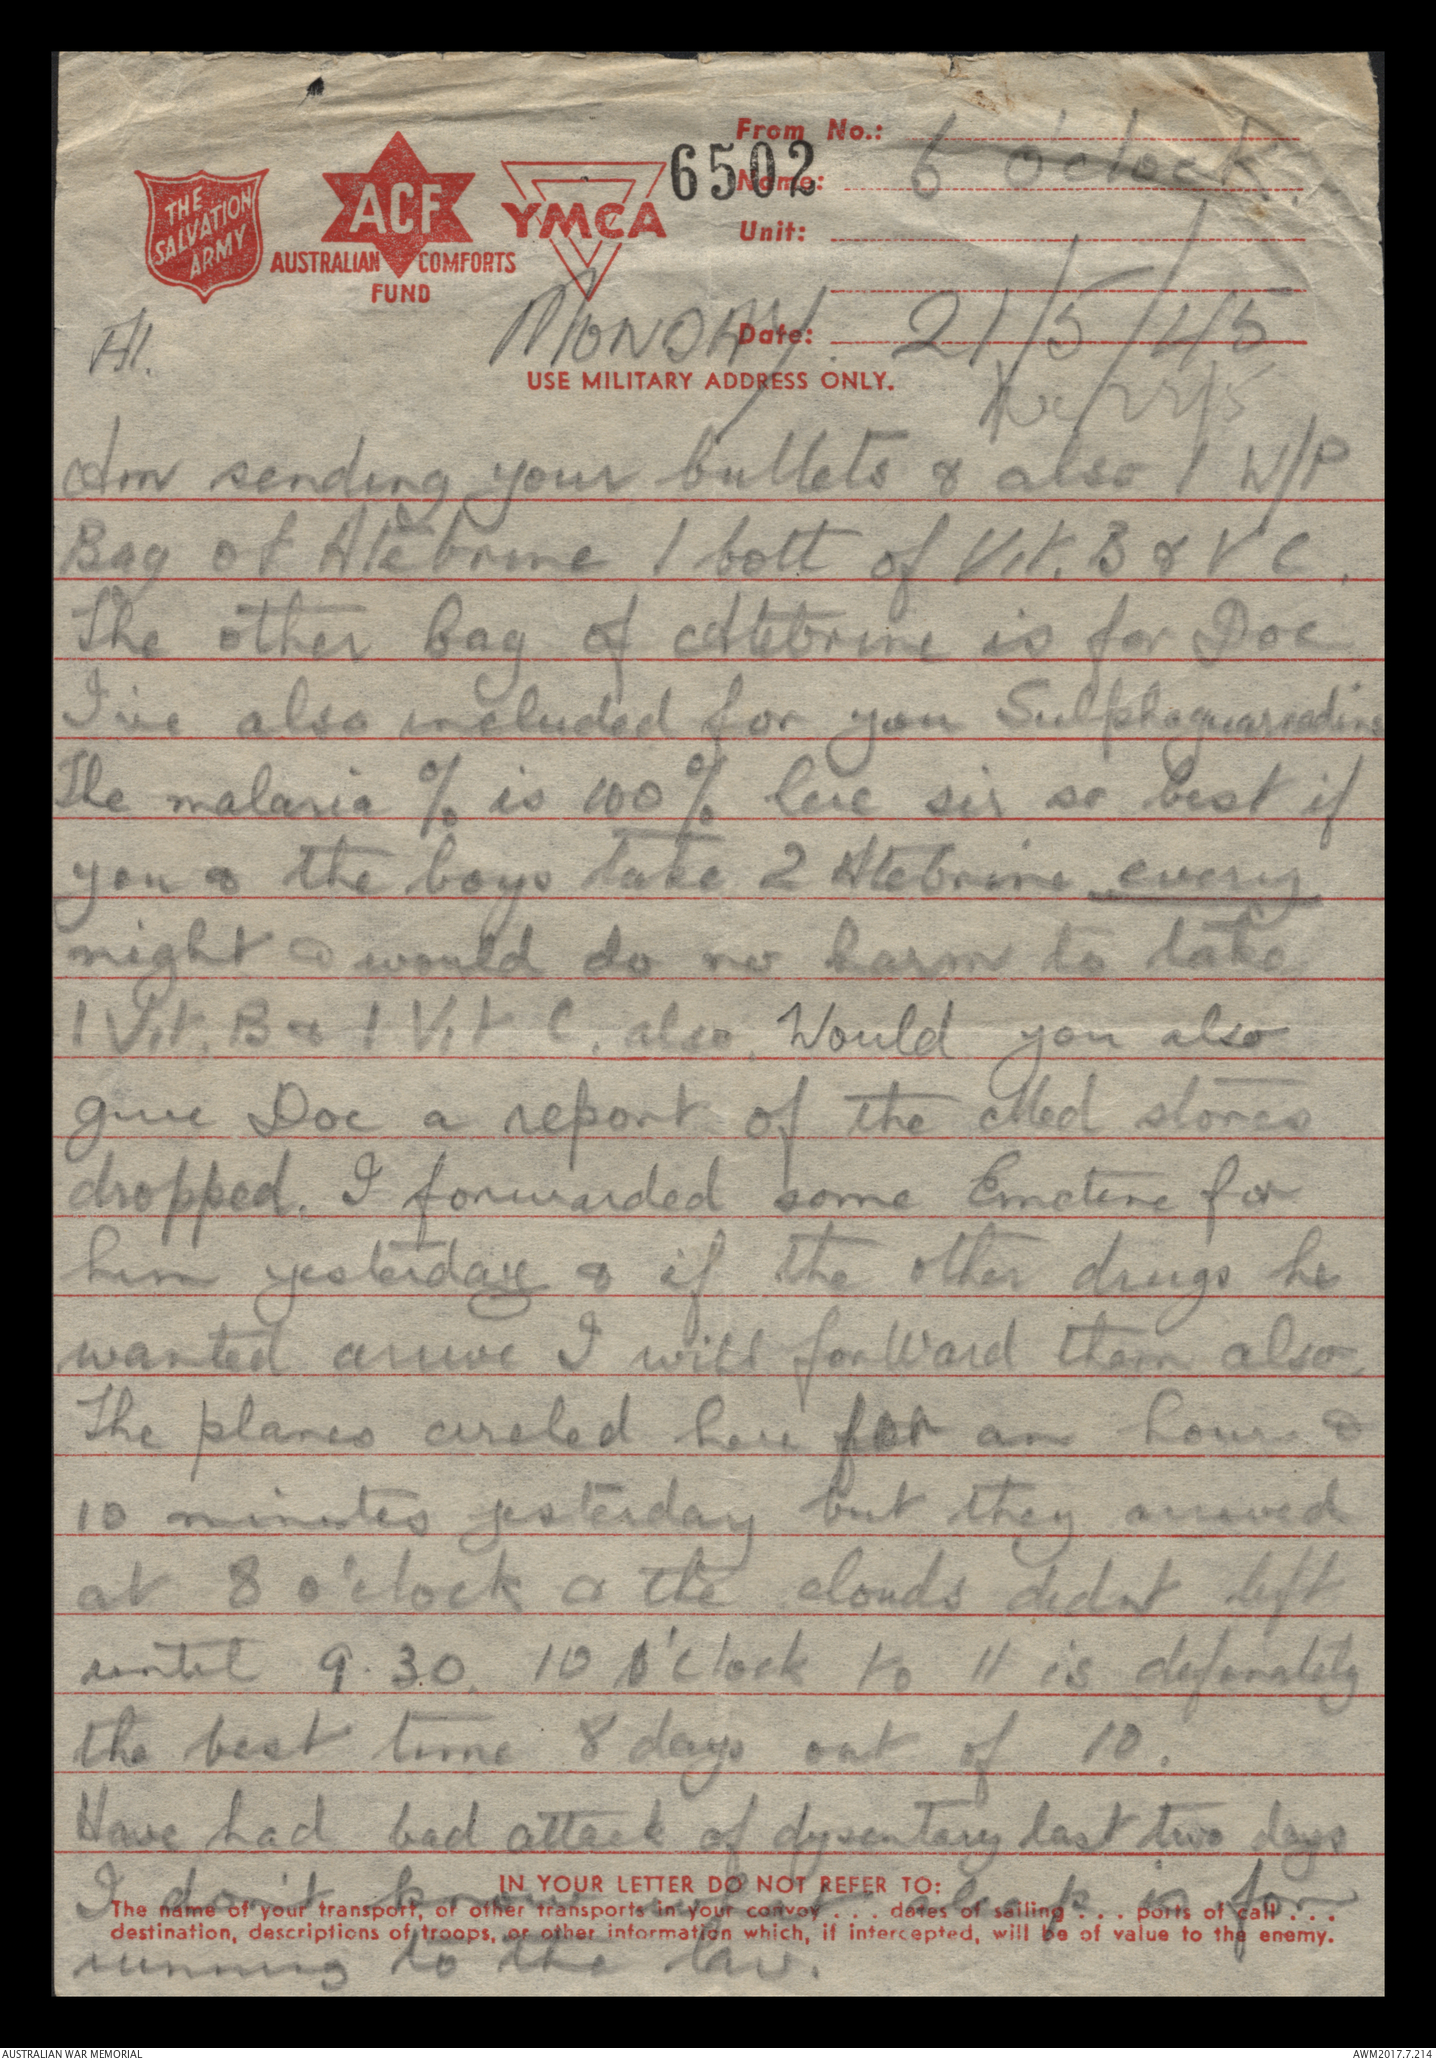 From No.:
6502
Name: 6 o'clock.
Unit:
THE
SALVATION
ARMY
ACF
AUSTRALIAN COMFORTS
FUND
YMCA
MONDAY. Date: 21/5/45
USE MILITARY ADDRESS ONLY.
22/5
Am sending your bullets & also 1 W/P
Bag of Atebrine 1 bott of Vit. B & V C.
The other bag of Atebrine is for Doc
I've also included for you Sulphaguanadine
The malaria % is 100% here sir so best if
you & the boys take 2 Atebrine every
night & would do no harm to take
1 Vit. B & 1 Vit C. also. Would you also
give Doc a report of the Med stores
dropped. I forwarded some Emetine for
him yesterday & if the other drugs he
wanted arrive I will forward them also.
The planes circled here for an hour &
10 minutes yesterday but they arrived
at 8 o'clock & the clouds didnt lift
until 9.30. 10 o'clock to 11 is definately
the best time 8 days out of 10.
Have had bad attack of dysentary last two days
I don't know what sleep is for
IN YOUR LETTER DO NOT REFER TO:
The name of your transport, or other transports in your convoy . . . dates of sailing . . . ports of call . . .
destination, descriptions of troops, or other information which, if intercepted, will be of value to the enemy.
running to the lav.
AUSTRALIAN WAR MEMORIAL
AWM2017.7.214